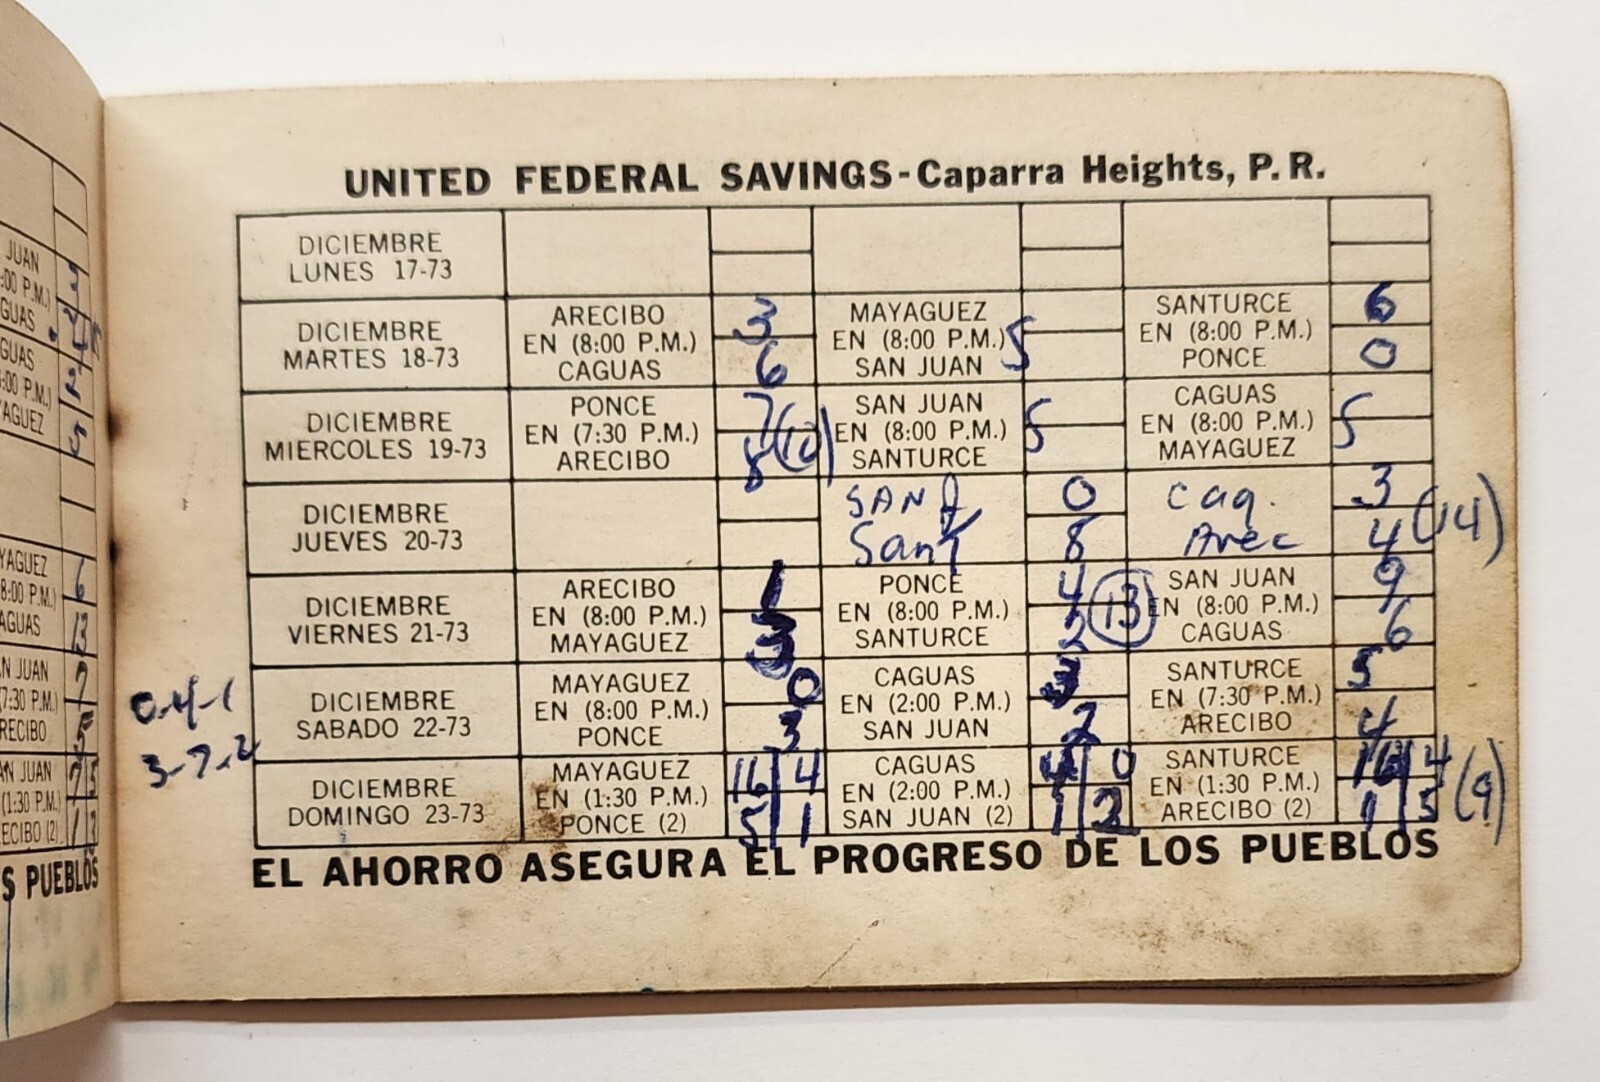 UNITED FEDERAL SAVINGS-Caparra Heights, P.R.
DICIEMBRE
LUNES 17-73
DICIEMBRE
MARTES 18-73
ARECIBO 3
EN (8:00 P.M.)
CAGUAS 6
MAYAGUEZ
EN (8:00 P.M.) S
SAN JUAN
SANTURCE 6
EN (8:00 P.M.)
PONCE 0
DICIEMBRE
MIERCOLES 19-73
PONCE 7
EN (7:30 P.M.) (10)
ARECIBO 8
SAN JUAN
EN (8:00 P.M.) S
SANTURCE
CAGUAS
EN (8:00 P.M.) S
MAYAGUEZ
DICIEMBRE
JUEVES 20-73
SAN J 0
Sant 8
Cag. 3
Arec 4 (14)
DICIEMBRE
VIERNES 21-73
ARECIBO 1
EN (8:00 P.M.)
MAYAGUEZ 3
PONCE 4
EN (8:00 P.M.) (13)
SANTURCE 2
SAN JUAN 9
EN (8:00 P.M.)
CAGUAS 6
0-4-1
3-7-2
DICIEMBRE
SABADO 22-73
MAYAGUEZ 0
EN (8:00 P.M.)
PONCE 3
CAGUAS 3
EN (2:00 P.M.)
SAN JUAN 2
SANTURCE 5
EN (7:30 P.M.)
ARECIBO 4
DICIEMBRE
DOMINGO 23-73
MAYAGUEZ 16 4
EN (1:30 P.M.)
PONCE (2) 5 1
CAGUAS 4 0
EN (2:00 P.M.)
SAN JUAN (2) 1 2
SANTURCE 4
EN (1:30 P.M.) (9)
ARECIBO (2) 1 5
EL AHORRO ASEGURA EL PROGRESO DE LOS PUEBLOS